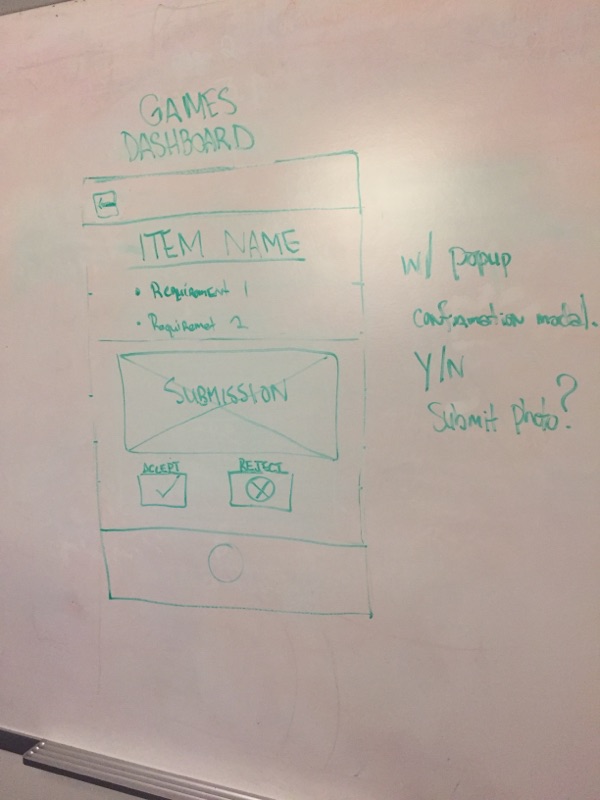 GAMES
DASHBOARD
ITEM NAME
• Requirement 1
• Requiremet 2
SUBMISSION
ACCEPT
REJECT
w/ popup
confirmation modal.
Y/N
Submit photo?